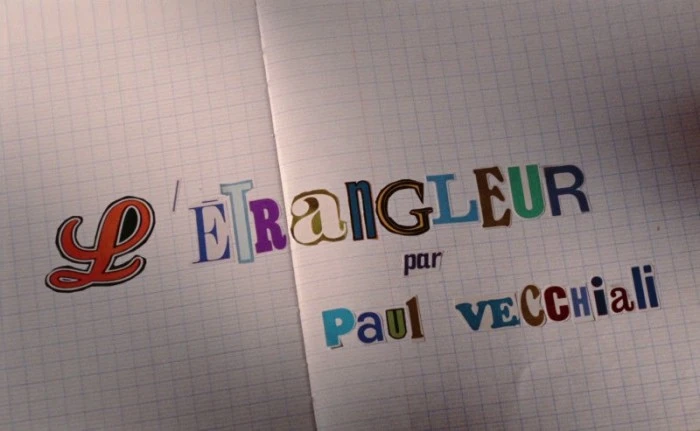 L'ÉTRanGLEUR
par
Paul VECCHiali